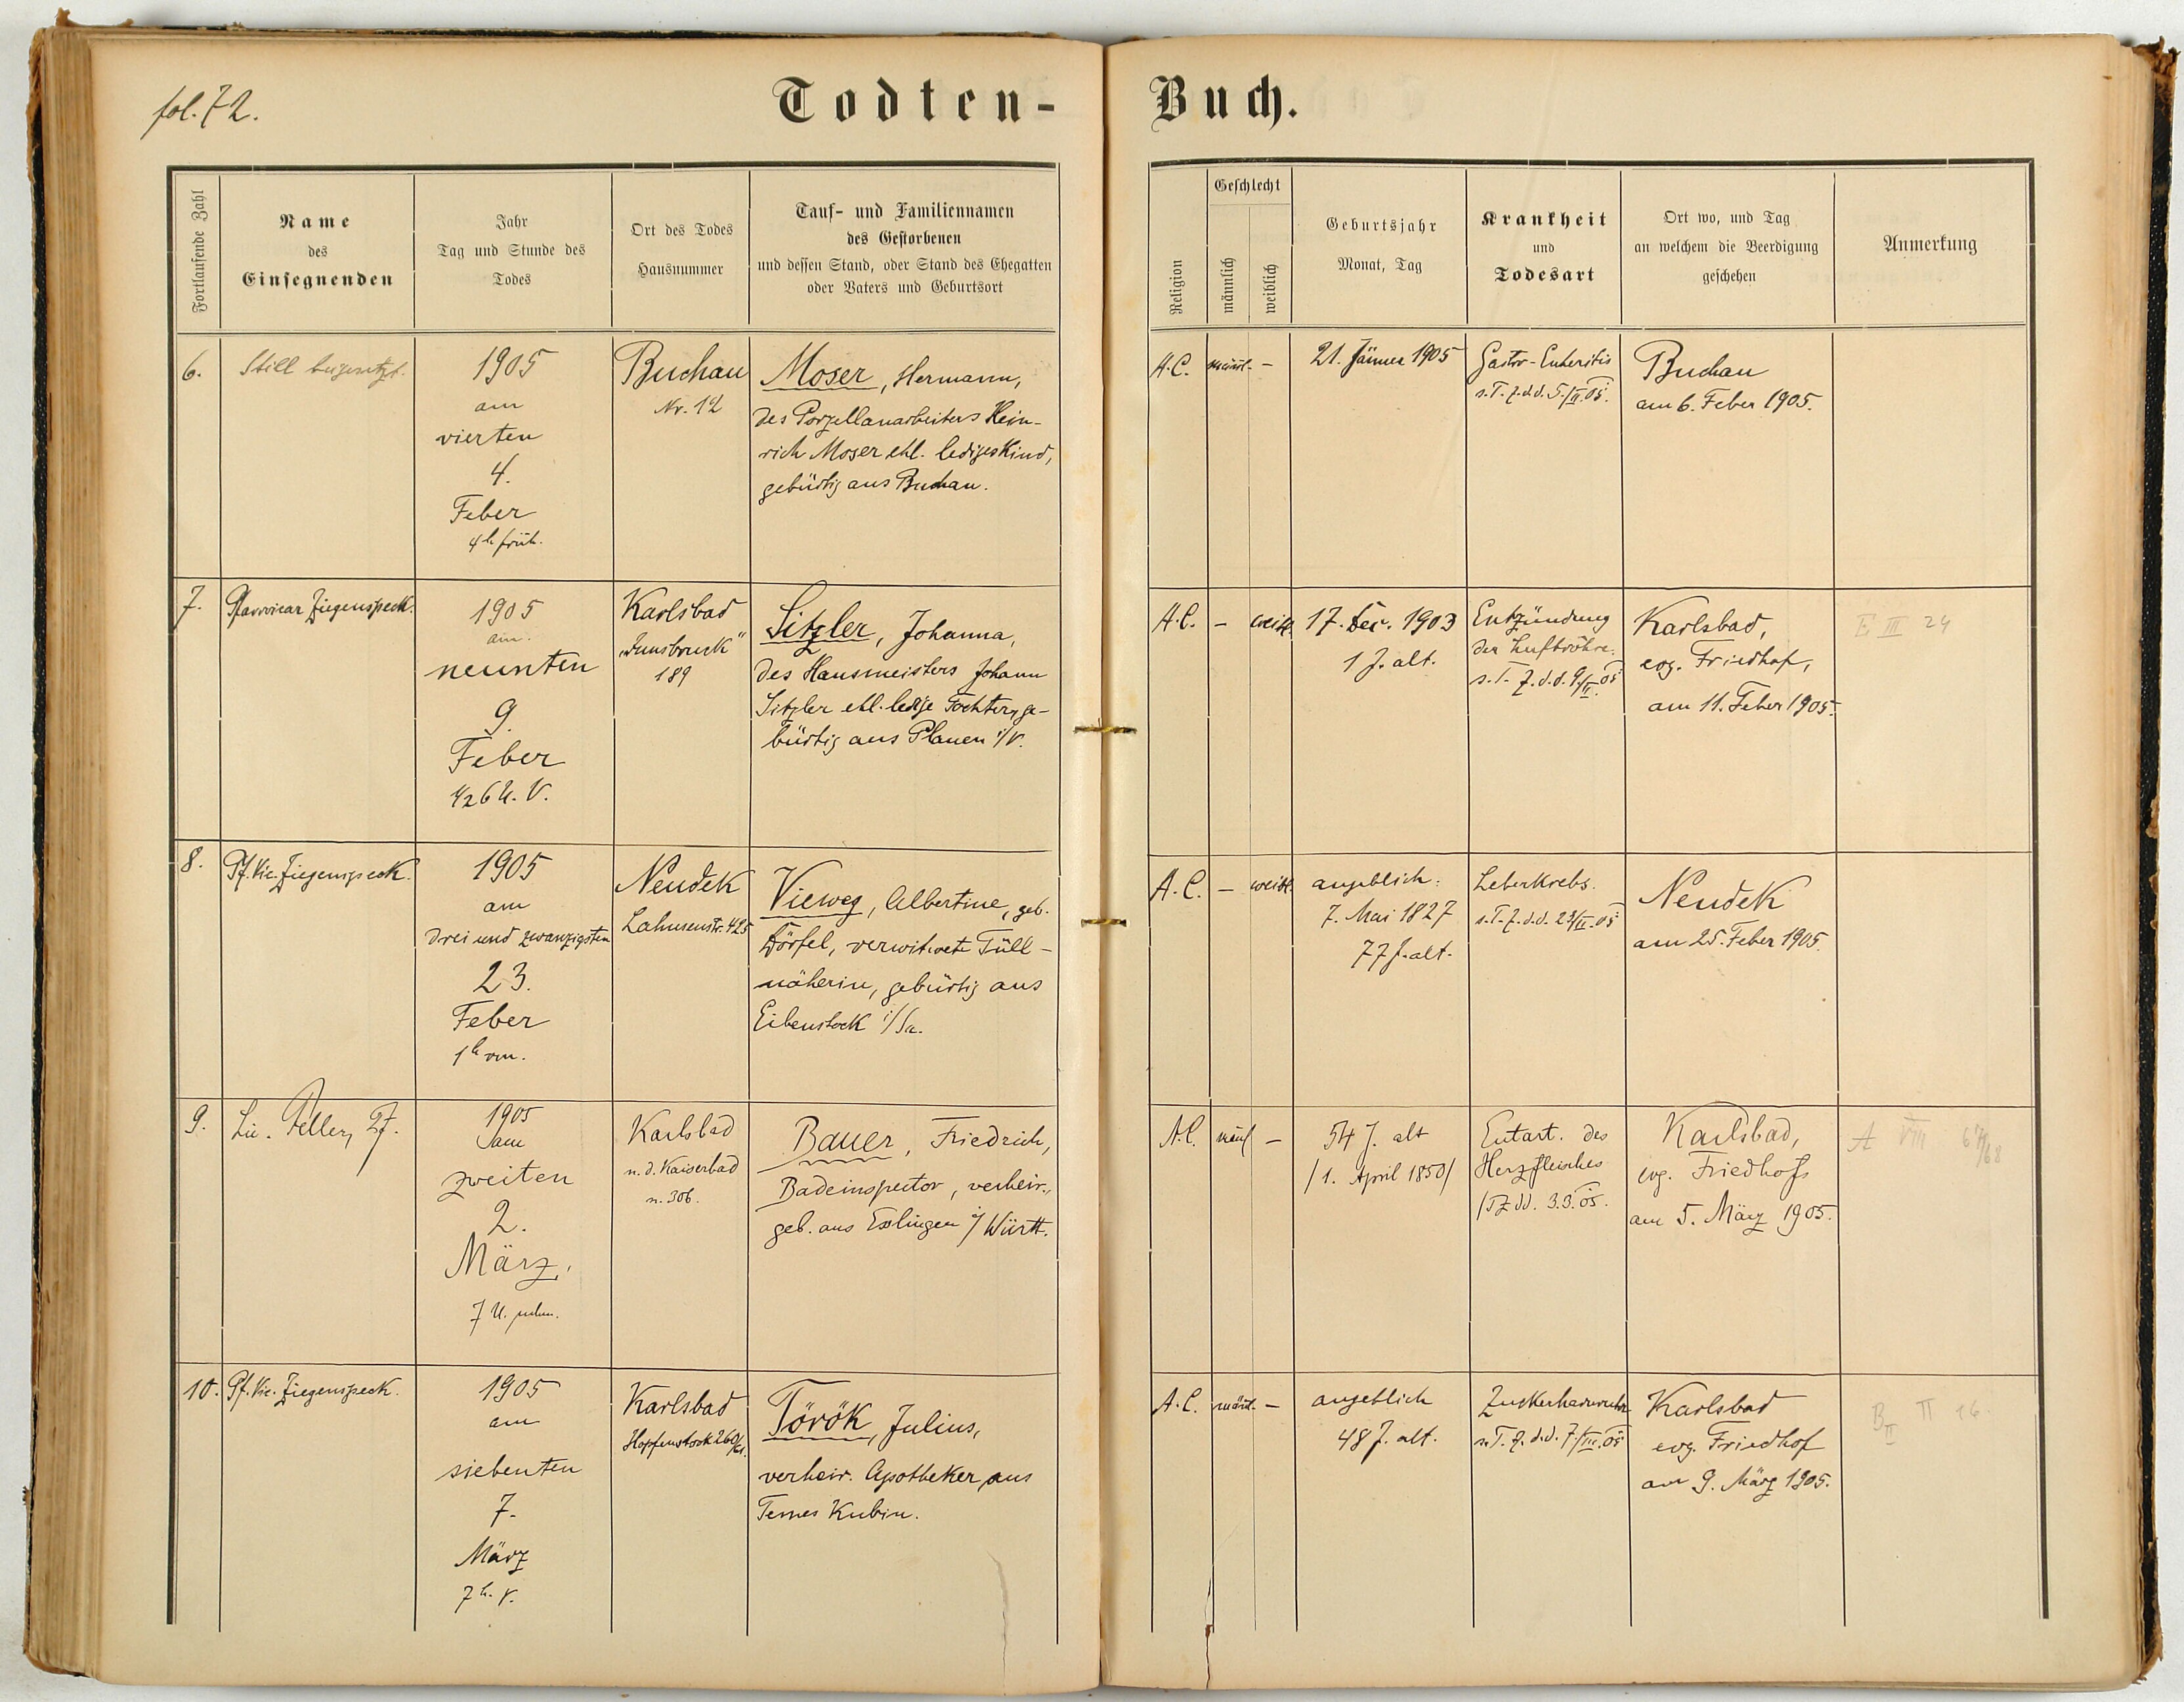 fol. 72.
Todten-Buch.
Fortlaufende Zahl
Name
des
Einsegnenden
Jahr
Tag und Stunde des
Todes
Ort des Todes
Hausnummer
Tauf- und Familiennamen
des Gestorbenen
und dessen Stand, oder Stand des Ehegatten
oder Vaters und Geburtsort
Religion
Geschlecht
männlich
weiblich
Geburtsjahr
Monat, Tag
Krankheit
und
Todesart
Ort wo, und Tag
an welchem die Beerdigung
geschehen
Anmerkung
6.
Still beigesetzt.
1905
am
vierten
4.
Feber
4h früh.
Buchau
Nr. 12
Moser, Hermann,
des Porzellanarbeiters Hein-
rich Moser ehl. lediges Kind,
gebürtig aus Buchau.
A.C.
männl.
-
21. Jänner 1905
Gastro-Enteritis
s. T.Z. d.d. 5./II. 05.
Buchau
am 6. Feber 1905.
7.
Pfarrvicar Ziegenspeck.
1905
am
neunten
9.
Feber
1/2 6 U. V.
Karlsbad
„Innsbruck"
189
Sitzler, Johanna,
des Hausmeisters Johann
Sitzler ehl. ledige Tochter, ge-
bürtig aus Plauen i/V.
A.C.
-
weibl.
17. Dec. 1903
1 J. alt.
Entzündung
der Luftröhre.
s. T.Z. d.d. 9/II. 05
Karlsbad,
evg. Friedhof,
am 11. Feber 1905.
E III 24
8.
Pf. Vic. Ziegenspeck.
1905
am
drei und zwanzigsten
23.
Feber
1h vm.
Neudek
Lahnenstr. 425
Vieweg, Albertine, geb.
Dörfel, verwitwete Tüll-
näherin, gebürtig aus
Eibenstock i/Sa.
A.C.
-
weibl.
angeblich:
7. Mai 1827
77 J. alt.
Leberkrebs.
s. T.Z. d.d. 23/II. 05
Neudek
am 25. Feber 1905.
9.
Lic. Feller, Pf.
1905
am
zweiten
2.
März.
7 U. nchm.
Karlsbad
n. d. Kaiserbad
n. 306.
Bauer, Friedrich,
Badeinspector, verheir.,
geb. aus Esslingen i/ Württ.
A.C.
männl
-
54 J. alt
/1. April 1850/
Entart. des
Herzfleisches
/TZ dd. 3.3. 05.
Karlsbad,
evg. Friedhof
am 5. März 1905.
A VIII 67/68
10.
Pf. Vic. Ziegenspeck.
1905
am
siebenten
7.
März
7h. V.
Karlsbad
Hopfenstock 260/
Török, Julius,
verheir. Apotheker, aus
Temes Kubin.
A.C.
männl.
-
angeblich
48 J. alt.
Zuckerharnruhr
s. T.Z. d.d. 7/III. 05
Karlsbad
evg. Friedhof
am 9. März 1905.
B II II 16